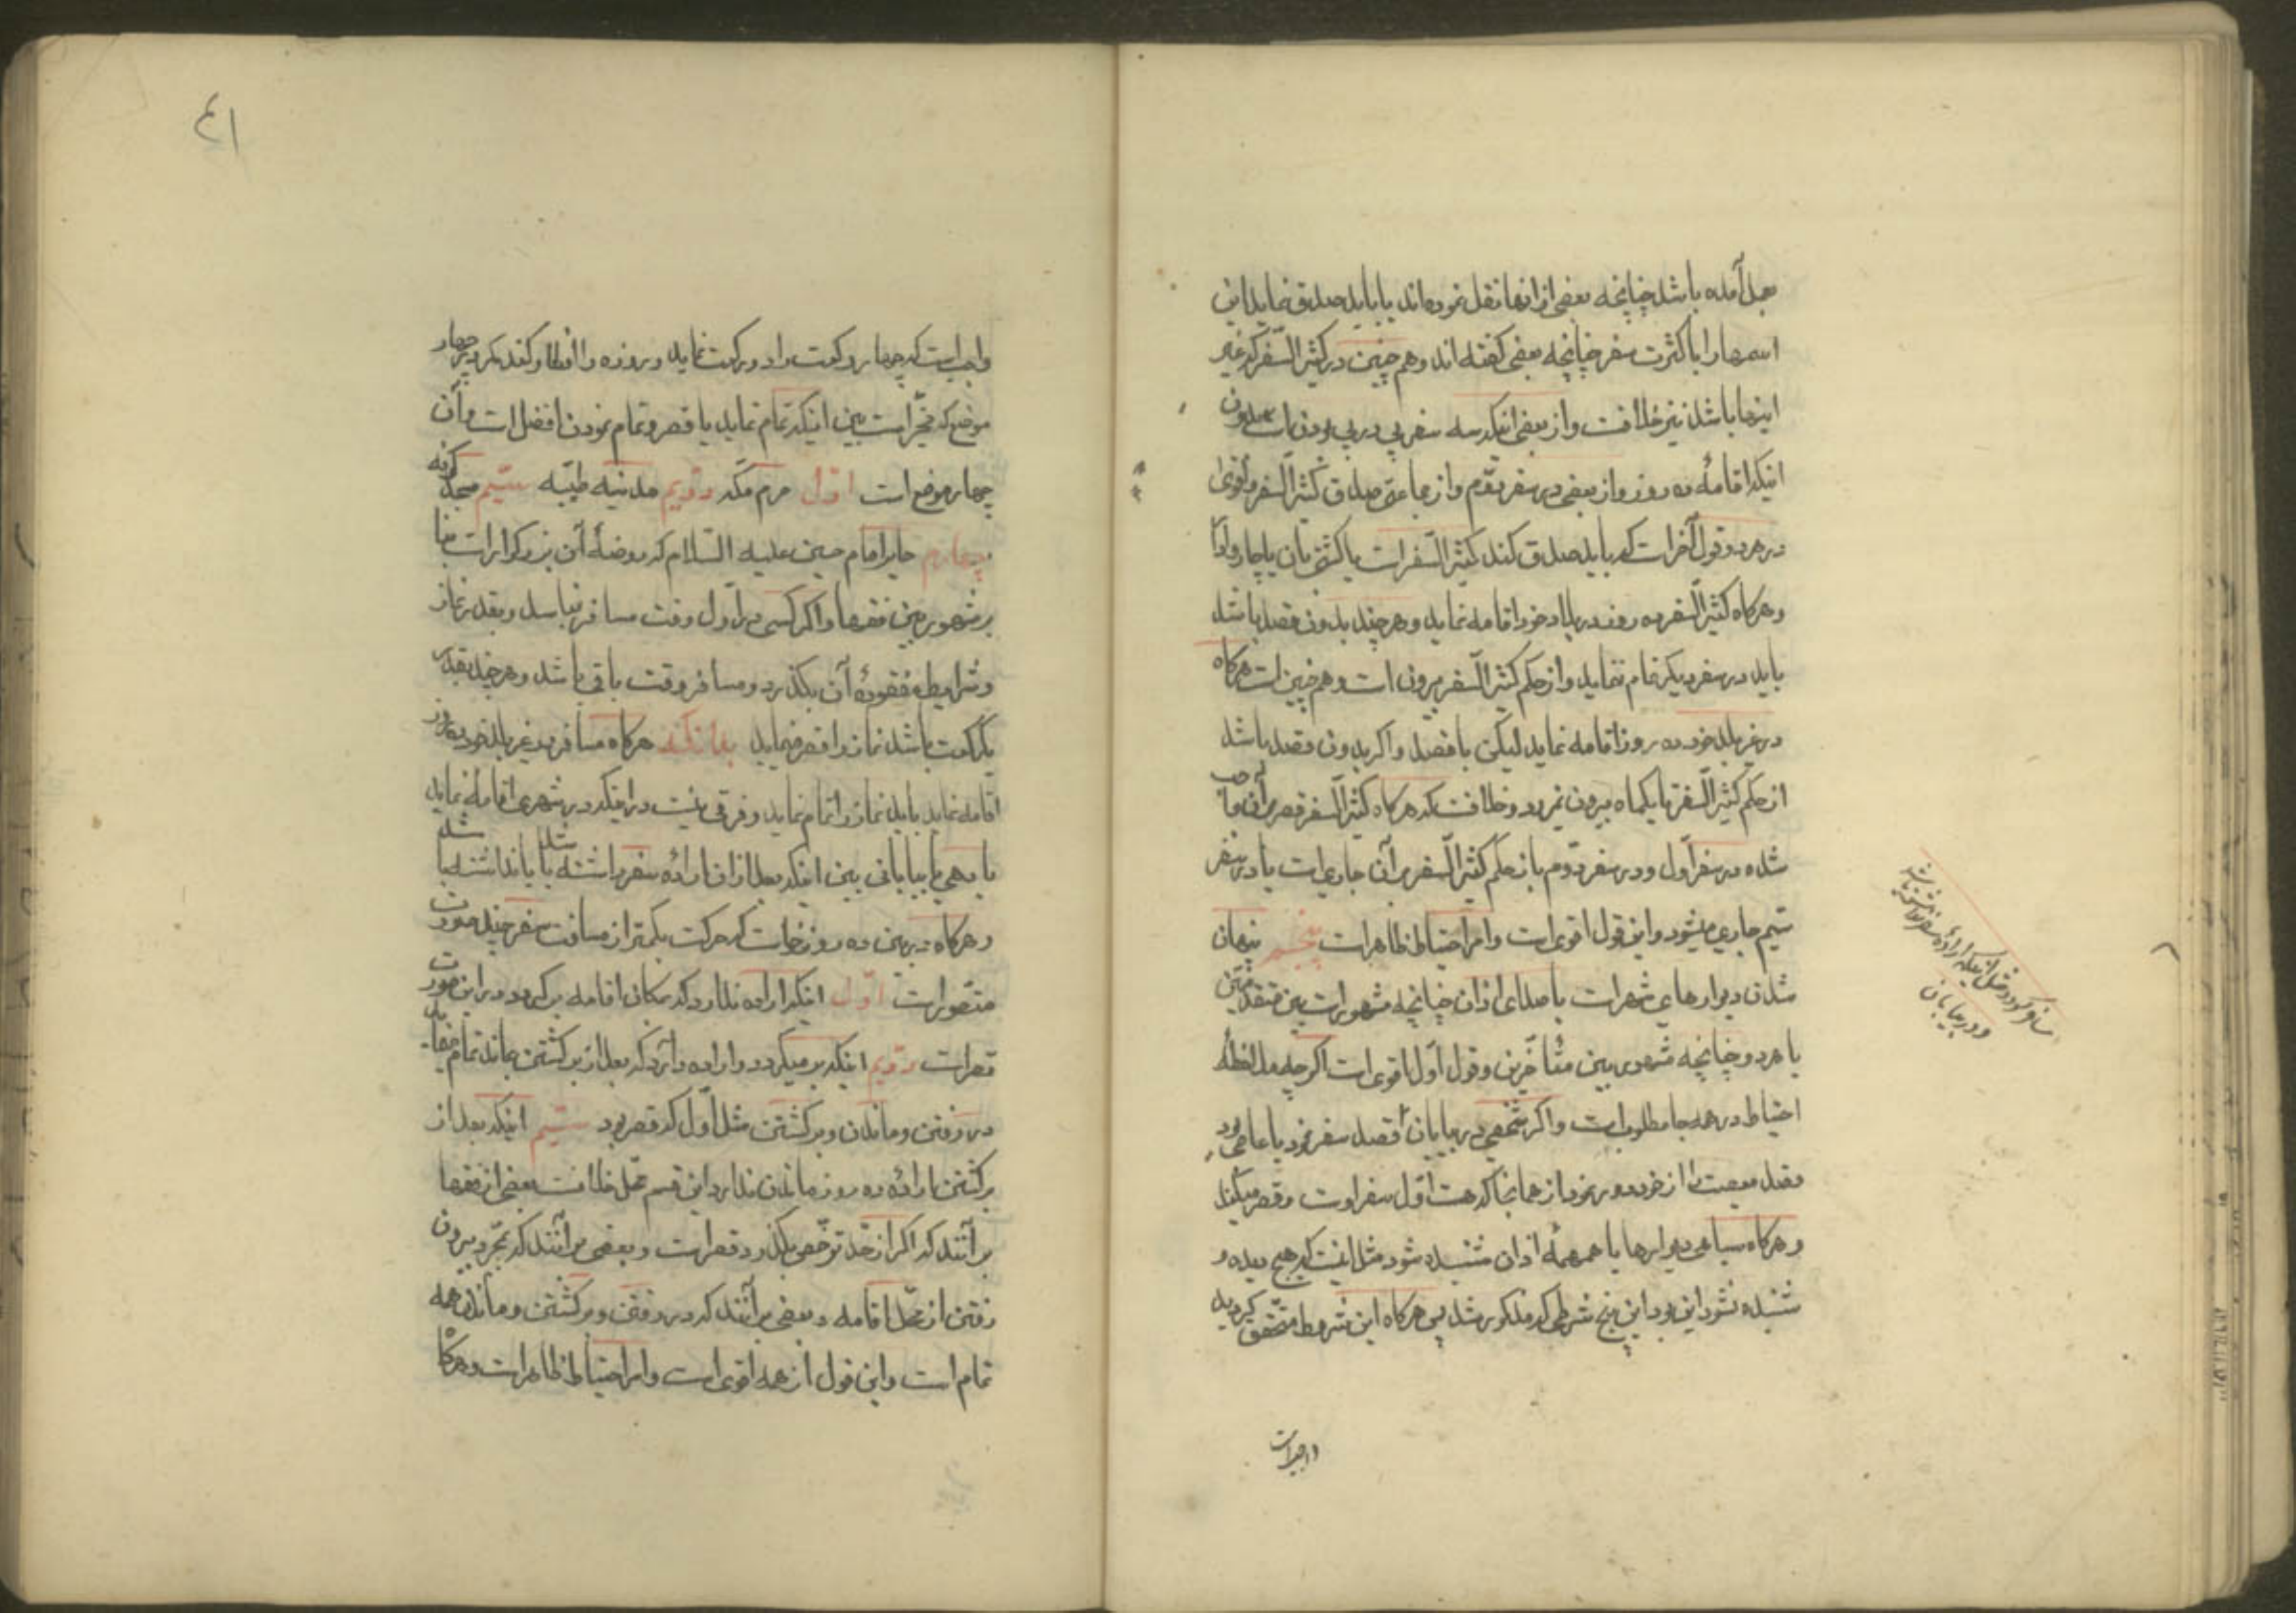 بعمل آمده باشد چنانچه بعضی از انها نقل نموده‌اند یا باید صدق نماید این
اسمها را با کثرت سفر چنانچه بعضی کفته اند وهم چنین در کثیر السّفر که غیر
اینها باشد نیز خلافت واز بعضی اینکه سه سفر پی در پی بودن است بدون
اینکه اقامهٔ ده روز واز بعضی در سفر دوّم واز جماعتی صدق کثیر السّفر واقوی
در هر دو قول آخرات که باید صدق کند کثیر السّفرات یا کشتی بان یا چاروادا
وهرکاه کثیر السّفر ده روز در بلاد خود اقامه نماید وهرچند بدون قصد باشد
باید در سفر دیکر تمام ننماید واز حکم کثیر السّفر بیرون است وهم چنین است هرکاه
در غیر بلد خود ده روز اقامه نماید لیکن با قصد واکر بدون قصد باشد
از حکم کثیر السّفر تا یکماه بیرون نمیرود وخلافت که هرکاه کثیر السّفر قصر برآن واجب
شده در سفر اوّل ودر سفر دوّم باز حکم کثیر السّفر برآن جاری است یا در سفر
سیّم جاری میشود واین قول اقوی است وامر احتیاط ظاهرات پنجم پنهان
شدن دیوارهای شهرات یا صدای اذان چنانچه مشهورات بین متقدّمین
یا هر دو چنانچه مشهور بین متأخّرین وقول اوّل اقوی است اکرچه ملاحظهٔ
احتیاط در همه جا مطلوبست واکر شخصی در بیابان قصد سفر نمود یا عاصی بود
وقصد معصیت را از خود دور نمود از همانجا که هست اوّل سفر اوست وقصر میکند
وهرکاه سیاهی دیوارها یا همهمهٔ اذان شنیده شود مثل اینست که هیچ دیده و
شنیده نشود این بود این پنج شرطی که مذکور شد پس هرکاه این شروط متحّقق کردید
واجبست
ودر بیابان
٤١
واجب است که چهار رکعت را دو رکعت نماید وروزه را افطار کند مکر در چهار
موضع که مخیّرات بین اینکه تمام نماید یا قصر وتمام نمودن افضل است وآن
چهار موضع است اوّل حرم مکّه دوّیم مدنیه طیّبه سیّیم مسجد کوفه
چهارم حایر امام حسین علیه السّلام که روضهٔ آن بزرکوارات بنا
بر مشهور بین فقها واکر کسی در اوّل وقت مسافر نباشد وبقدر نماز
وشرایط مفقودهٔ آن بکذرد ومسافر وقت باقی باشد وهرچند بقدر
یکرکعت باشد نماز را قصر مینماید بدانکه هرکاه مسافر در غیر بلد خود ده روز
اقامه نماید باید نماز را تمام نماید وفرقی نیست در اینکه در شهری اقامه نماید
یا دهی یا بیابانی بین اینکه بعد از آن ارادهٔ سفر داشته باشد یا نداشته باشد
وهرکاه در بین ده روز خواست که حرکت بکمتر از مسافت سفر چند صورت
متصّورات اوّل اینکه اراده ندارد که بمکان اقامه برکردد در این صورت
قصرات دوّیم اینکه برمیکردد واراده دارد که بعد از برکشتن بماند تمام
در رفتن وماندن وبرکشتن مثل اوّل که قصر بود سیّیم اینکه بعد از
برکشتن ارادهٔ ده روز ماندن ندارد این قسم محّل خلافت بعضی از فقها
برآنند که اکر از حدّ ترخّص بکذرد قصرات وبعضی برآنند که بمجّرد بیرون
رفتن از محّل اقامه وبعضی برآنند که در رفتن وبرکشتن وماندن همه
تمام است واین قول از همه اقوی است وامر احتیاط ظاهرات وهرکاه